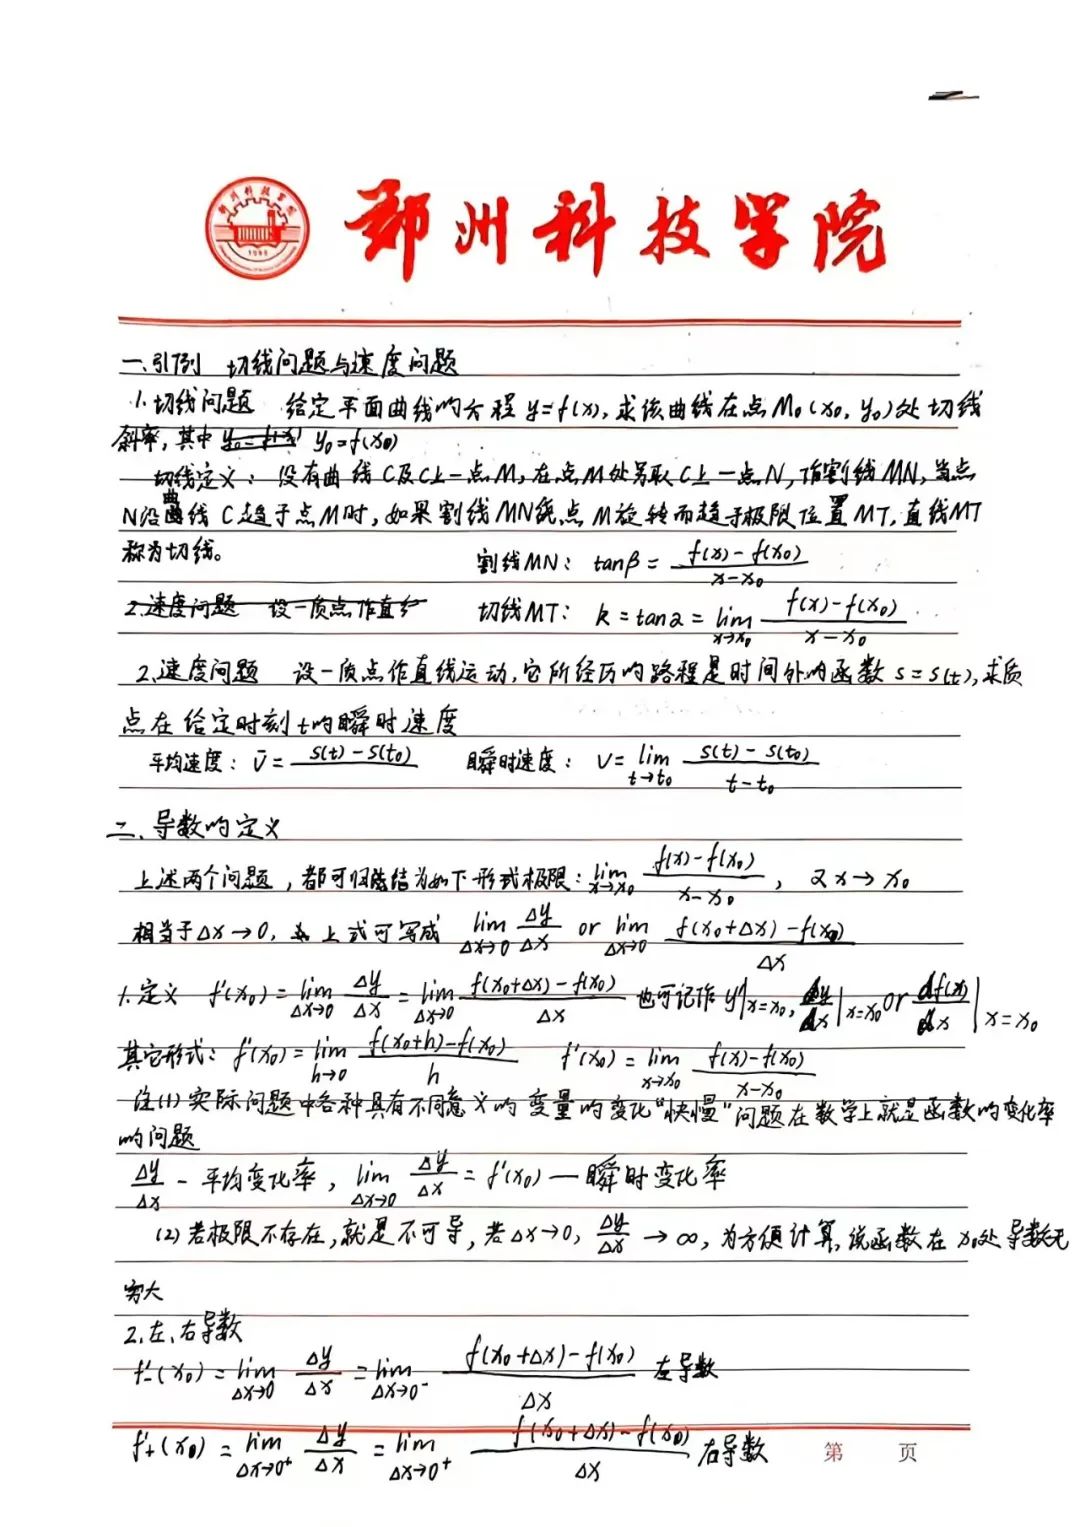 郑州科技学院
一、引例 切线问题与速度问题
1. 切线问题 给定平面曲线的方程 y=f(x), 求该曲线在点M₀(x₀, y₀)处切线
斜率, 其中 y₀=f(x₀)
切线定义: 设有曲线C及C上一点M, 在点M处另取C上一点N, 作割线MN, 当点
N沿曲线C趋于点M时, 如果割线MN绕点M旋转而趋于极限位置MT, 直线MT
称为切线。 割线MN: tanβ = (f(x)-f(x₀))/(x-x₀)
2.速度问题 设一质点作直线 切线MT: k=tanα=lim_{x→x₀} (f(x)-f(x₀))/(x-x₀)
2.速度问题 设一质点作直线运动, 它所经历的路程是时间的函数 s=s(t), 求质
点在给定时刻t的瞬时速度
平均速度: v̄ = s(t)-s(t₀) 瞬时速度: v=lim_{t→t₀} (s(t)-s(t₀))/(t-t₀)
二、导数的定义
上述两个问题, 都可归结为如下形式极限: lim_{x→x₀} (f(x)-f(x₀))/(x-x₀), 又x→x₀
相当于Δx→0, 上式可写成 lim_{Δx→0} Δy/Δx or lim_{Δx→0} (f(x₀+Δx)-f(x₀))/Δx
1. 定义 f'(x₀)=lim_{Δx→0} Δy/Δx = lim_{Δx→0} (f(x₀+Δx)-f(x₀))/Δx 也可记作 y'|x=x₀, dy/dx|x=x₀ or df(x)/dx|x=x₀
其它形式: f'(x₀)=lim_{h→0} (f(x₀+h)-f(x₀))/h f'(x₀)=lim_{x→x₀} (f(x)-f(x₀))/(x-x₀)
注(1) 实际问题中各种具有不同意义的变量的变化“快慢”问题在数学上就是函数的变化率
的问题
Δy/Δx - 平均变化率, lim_{Δx→0} Δy/Δx = f'(x₀) — 瞬时变化率
(2) 若极限不存在, 就是不可导, 若Δx→0, Δy/Δx → ∞, 为方便计算, 说函数在x₀处导数无
穷大
2. 左、右导数
f'₋(x₀)=lim_{Δx→0} Δy/Δx = lim_{Δx→0⁻} (f(x₀+Δx)-f(x₀))/Δx 左导数
f'₊(x₀)=lim_{Δx→0⁺} Δy/Δx = lim_{Δx→0⁺} (f(x₀+Δx)-f(x₀))/Δx 右导数
第 页